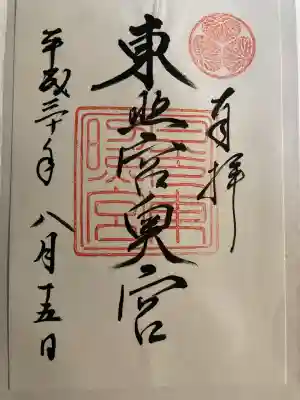 奉拝
東照宮奥宮
平成三十年八月十五日